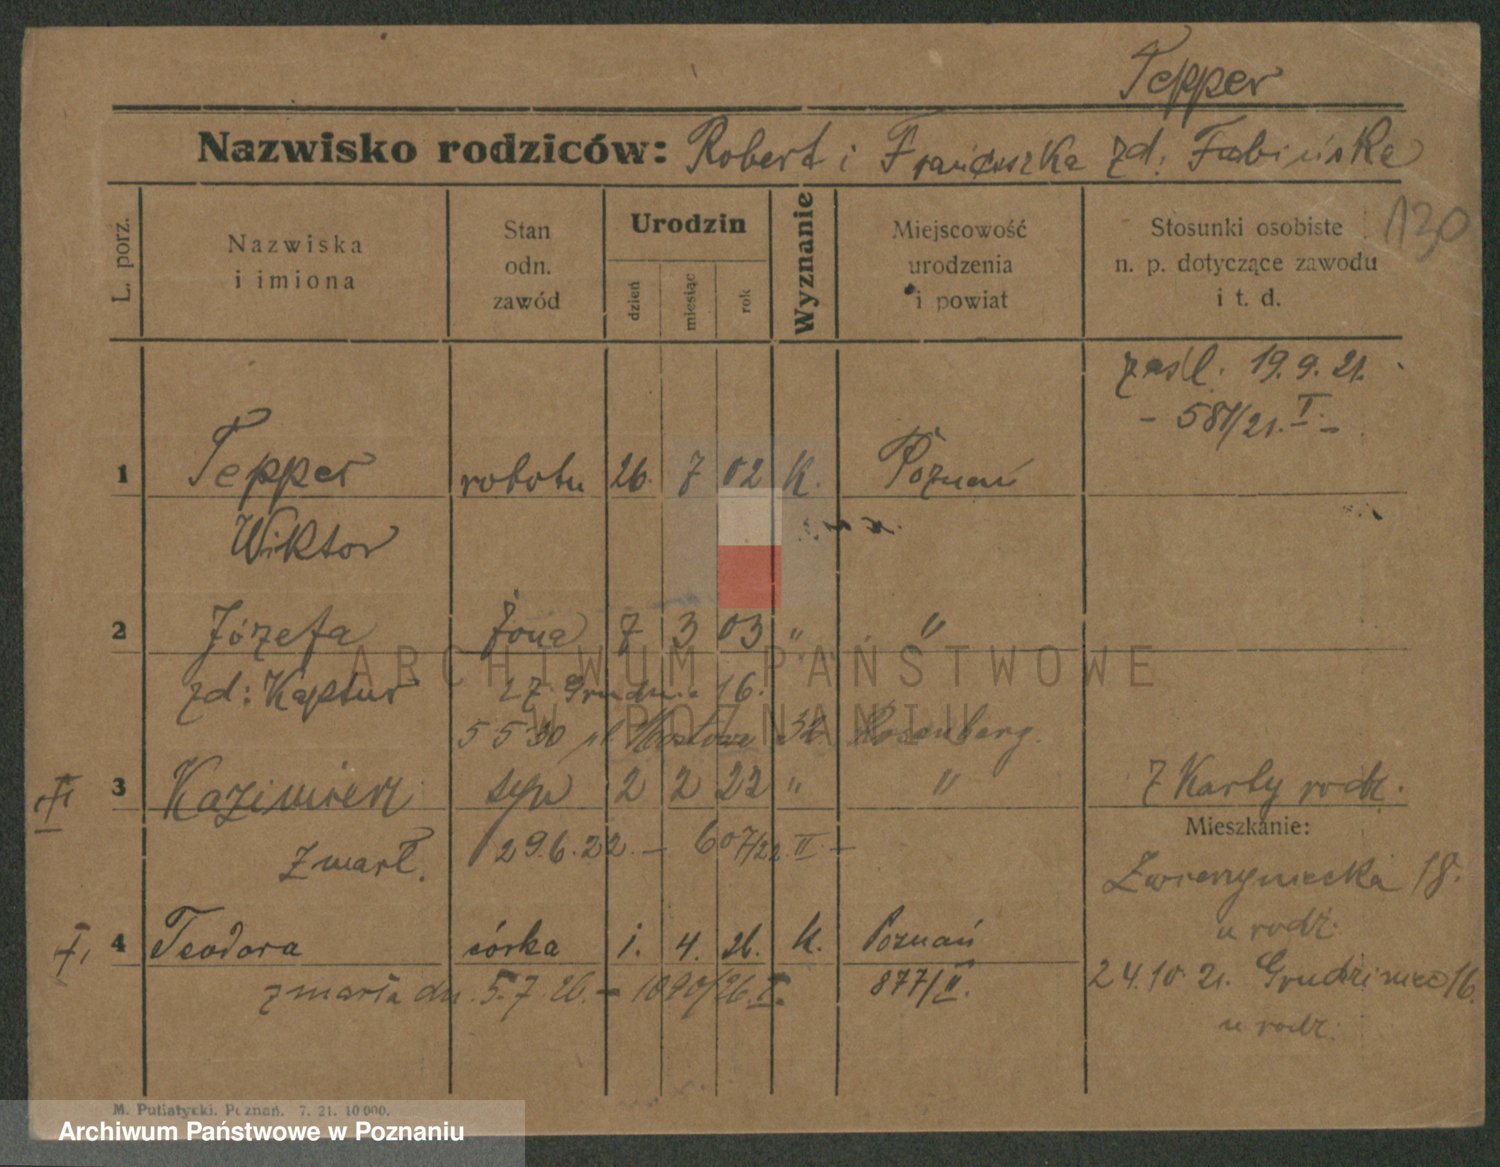 Tepper
Nazwisko rodziców: Robert i Franciszka zd. Fabińska
130
L. porz.
Nazwiska i imiona
Stan odn. zawód
Urodzin
dzień
miesiąc
rok
Wyznanie
Miejscowość urodzenia i powiat
Stosunki osobiste n. p. dotyczące zawodu i t. d.
zaśl. 19.9.21.
- 581/21. I. -
1 Tepper robotn 26. 7 02 K. Poznań
Wiktor
2 Józefa żona 7 3 03 " "
zd: Kaptur 27 Grudnia 16.
5 5 30 Mostowa Rosenberg.
3 Kazimierz syn 2 2 22 " " z Karty rodz.
Mieszkanie:
zmarł. 29.6.22. - 607/22. II -
Zwierzyniecka 18.
u rodz.
I. 4 Teodora córka 1. 4. 26. K. Poznań
877/II.
zmarła dn. 5.7.26. - 1090/26. I.
24.10 21. Grudzieniec 16.
u rodz.
M. Putiatycki. Poznań. 7. 21. 10 000.
ARCHIWUM PAŃSTWOWE
W POZNANIU
Archiwum Państwowe w Poznaniu